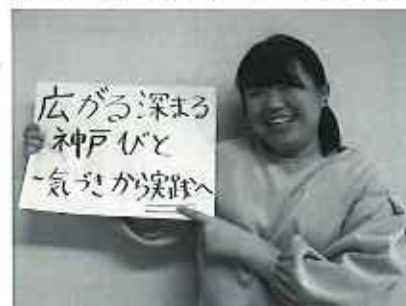 広がる深まる
神戸びと
-気づきから実践へ